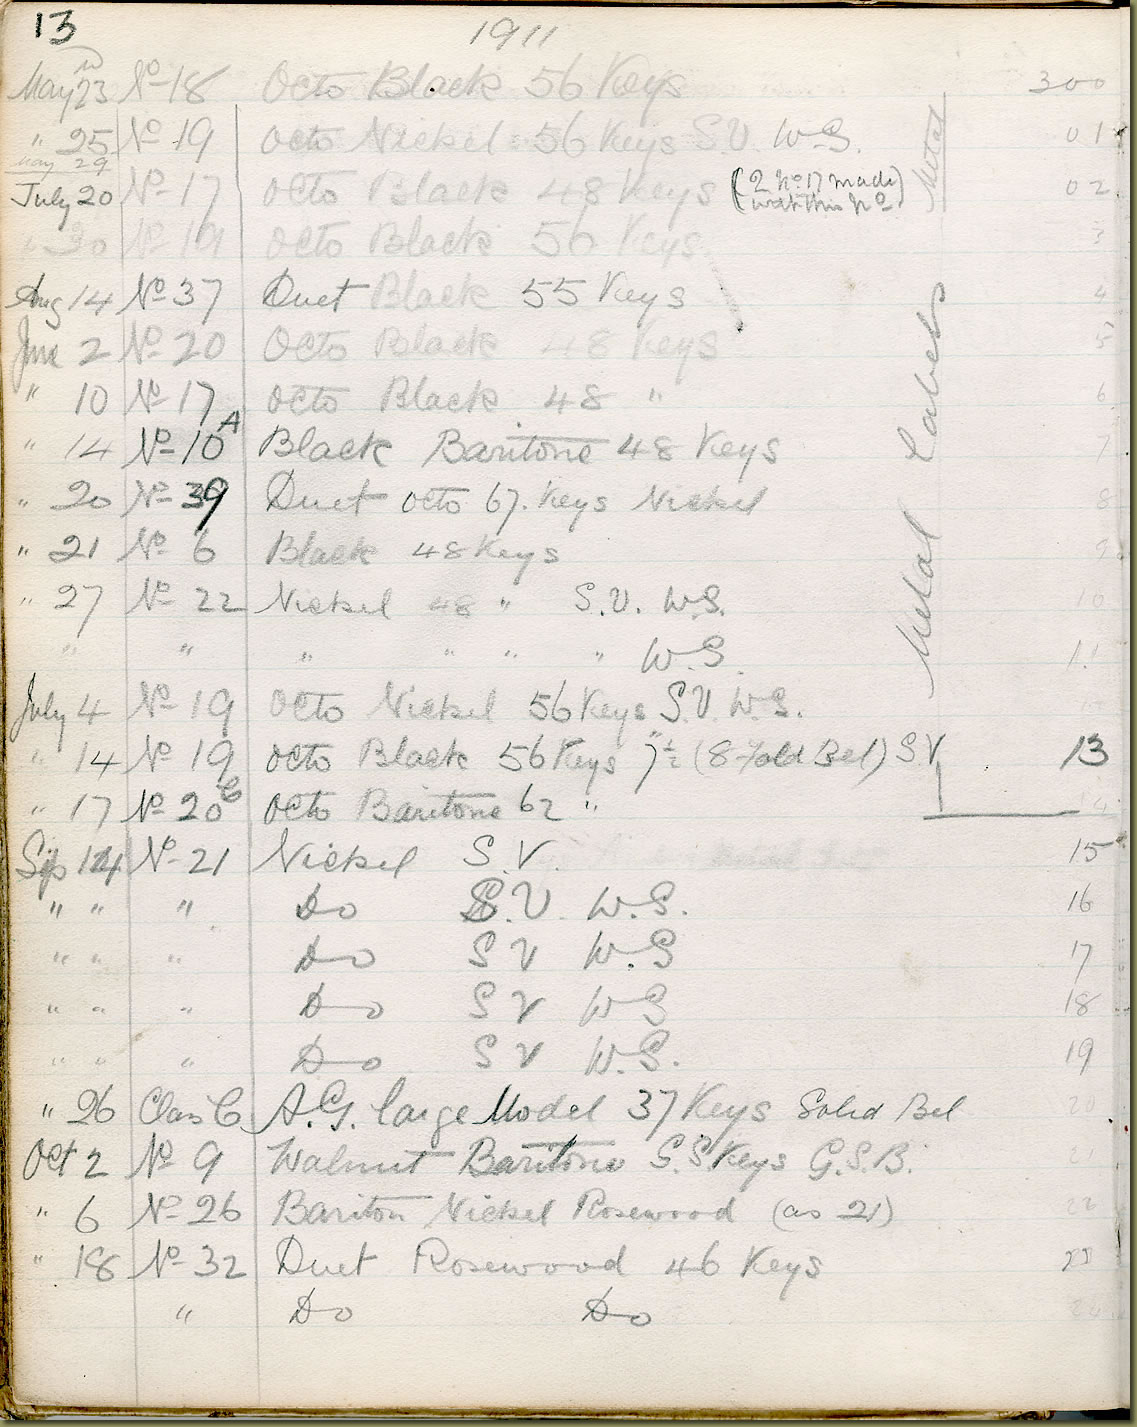 13
1911
May 23 No 18 Octo Black 56 Keys 300
" 25 No 19 Octo Nickel 56 Keys S.V. W.S. 01
May 29
July 20 No 17 Octo Black 48 Keys (2 No 17 made with this No) 02
" 30 No 19 Octo Black 56 Keys. 3
Aug 14 No 37 Duet Black 55 Keys 4
June 2 No 20 Octo Black 48 Keys 5
" 10 No 17 Octo Black 48 " 6
" 14 No 10A Black Baritone 48 Keys 7
" 20 No 39 Duet octo 67. Keys Nickel 8
" 21 No 6 Black 48 Keys 9
" 27 No 22 Nickel 48 " S.V. W.S. 10
" " " " " " W.S. 11
July 4 No 19 Octo Nickel 56 Keys S.V. W.S.
" 14 No 19 Octo Black 56 Keys 7 1/2 (8 fold Bel) S V 13
" 17 No 20C Octo Baritone 62 " 14
Metal
Metal Labels
Sep 14 No 21 Nickel S.V. 15
" " " Do S.V. W.S. 16
" " " Do S V W.S 17
" " " Do S V W S 18
" " " Do S V W.S. 19
" 26 Class C A.G. large Model 37 Keys Solid Bel 20
Oct 2 No 9 Walnut Baritone S.S. Keys G.S.B. 21
" 6 No 26 Bariton Nickel Rosewood (as 21) 22
" 18 No 32 Duet Rosewood 46 Keys 23
" Do Do 24